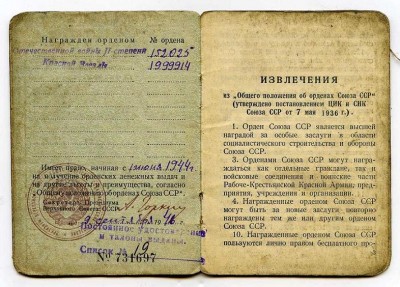 Награжден орденом № ордена
Отечественной войны II степени 152025
Красной Звезды 1999914
Имеет право, начиная с 1 июня 1944 г.
на получение орденских денежных выдач и
на другие льготы и преимущества, согласно
„Общему положению об орденах Союза ССР“
Секретарь Президиума
Верховного Совета СССР
9 сентября 46 г.
Постоянное удостоверение
и талоны выданы.
Список № 19
№ 731697
ИЗВЛЕЧЕНИЯ
из „Общего положения об орденах Союза ССР“
(утверждено постановлением ЦИК и СНК
Союза ССР от 7 мая 1936 г.).
1. Орден Союза ССР является высшей
наградой за особые заслуги в области
социалистического строительства и обороны
Союза ССР.
3. Орденами Союза ССР могут награ-
ждаться как отдельные граждане, так и
войсковые соединения и воинские части
Рабоче-Крестьянской Красной Армии, пред-
приятия, учреждения и организации.
4. Награжденные орденом Союза ССР
могут быть за новые заслуги повторно
награждены тем же или другим орденом
Союза ССР.
10. Награжденные орденом Союза ССР
пользуются лично правом бесплатного про-